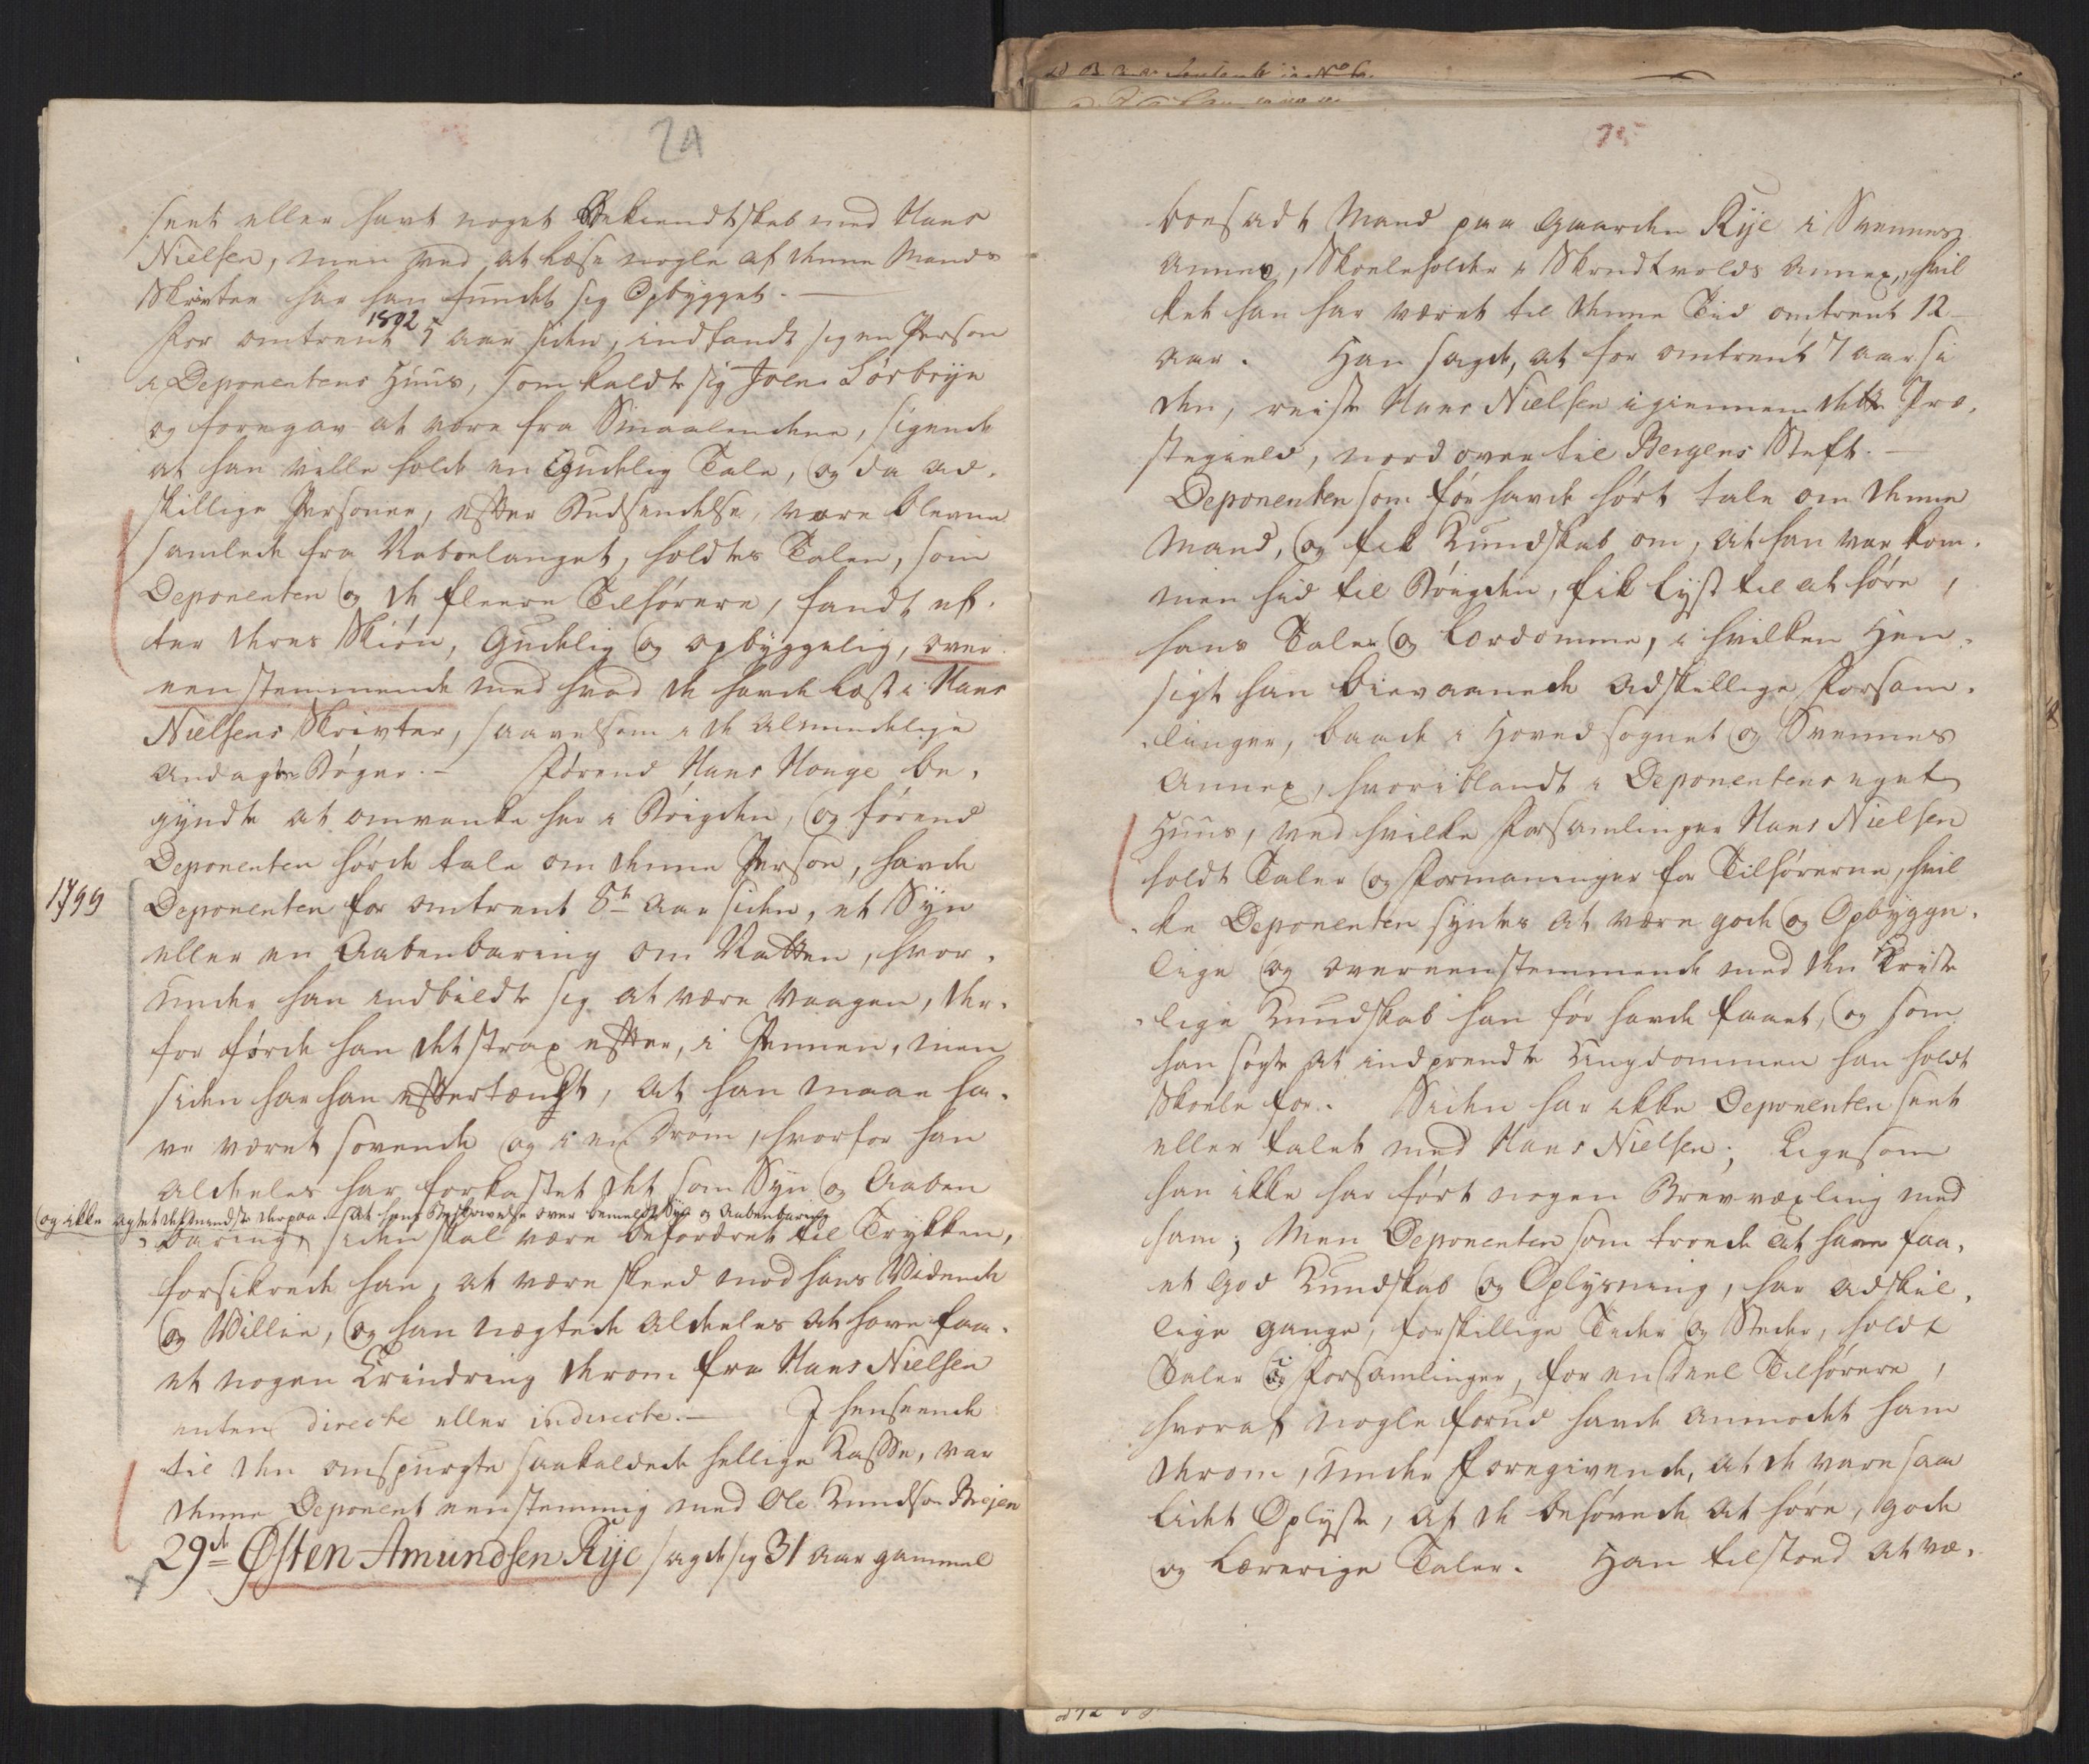 24
seet eller havt noget Bekiendtskab med Hans
Nielsen, men ved at læse nogle af denne Mands
Skrivter har han fundet sig Opbygget. —
1802
For omtrent 5 Aar siden, indfandt sig en Person
i Deponentens Huus, som kaldte sig Joen Sørbrye
og foregav at være fra Smaalenehne, sigende
at han vilde holde en Gudelig Tale, og da ad-
skillige Personer, efter Budsendelse, vare blevne
samlede fra Naboelauget, holdtes Talen, som
Deponenten og de fleere Tilhørere, fandt ef-
ter deres Skiøn, Gudelig og opbyggelig, over-
eenstemmende med hvad de havde læst i Hans
Nielsens Skrivter, saavelsom i de Almindelige
Andagts Bøger. — Førend Hans Hauge be-
gyndte at omvanke her i Bøigden, og førend
Deponenten hørde tale om denne Person, havde
1799
Deponenten for omtrent 8te Aar siden, et Syn
eller en Aabenbaring om Natten, hvor-
under han indbildte sig at være vaagen, der-
for førde han det strax efter, i Pennen, men
siden har han eftertænkt, at han maae ha-
ve været sovende og i en Drøm, hvorfor han
aldeeles har forkastet det som Syn og Aaben
og ikke agtet det mindste derpaa. — At hans Beskrivelse over bemeldte Syn og Aabenbaring
baring, siden skal være befordret til Trykken,
forsikrede han, at være skeed mod hans Vidende
og Villie, og han nægtede aldeeles at have faa-
et nogen Erindring derom fra Hans Nielsen
enten directe eller indirecte. — I henseende
til den omspurgte saakaldede hellige Kasse, var
denne Deponent eenstemmig med Ole Knudsen Brejen
29de Østen Amundsen Rye sagde sig 31 Aar gammel
75
boesadt Mand paa Gaarden Rye i Svennes
Annex, Skoeleholder i Skrudtvolds Annex, hvil
ket han har været til denne Tid omtrent 12
Aar. Han sagde, at for omtrent 7 Aar si
den, reiste Hans Nielsen igiennem dette Præ-
stegield, nord over til Bergens Stift. —
Deponenten som før havde hørt tale om denne
Mand, og fik Kundskab om, at han var kom-
men hid til Bøigden, fik Lyst til at høre
hans Taler og Lærdomme, i hvilken Hen-
sigt han bievaanede adskillige Forsam-
linger, baade i Hovedsognet og Svennes
Annex, hvoriblandt i Deponentens eget
Huus, ved hvilke Forsamlinger Hans Nielsen
holdt Taler og Formaninger for Tilhørerne, hvil
ke Deponenten syntes at være gode og Opbygge-
lige og overeenstemmende med den Kriste
lige Kundskab han før havde faaet, og som
han søgte at indprendte Ungdommen han holdt
Skoele for. Siden har ikke Deponenten seet
eller talet med Hans Nielsen; Ligesom
han ikke har ført nogen Brevvexling med
ham; Men Deponenten som troede at have faa-
et God Kundskab og Oplysning, har adskil-
lige Gange, forskillige Tider og Steder, holdt
Taler i Forsamlinger, for en Deel Tilhørere,
hvoraf nogle forud havde anmodet ham
derom, under Foregivende, at de vare saa
lidet Oplyste, at de behøvede at høre, gode
og Lærerige Taler. Han tilstoed at væ-